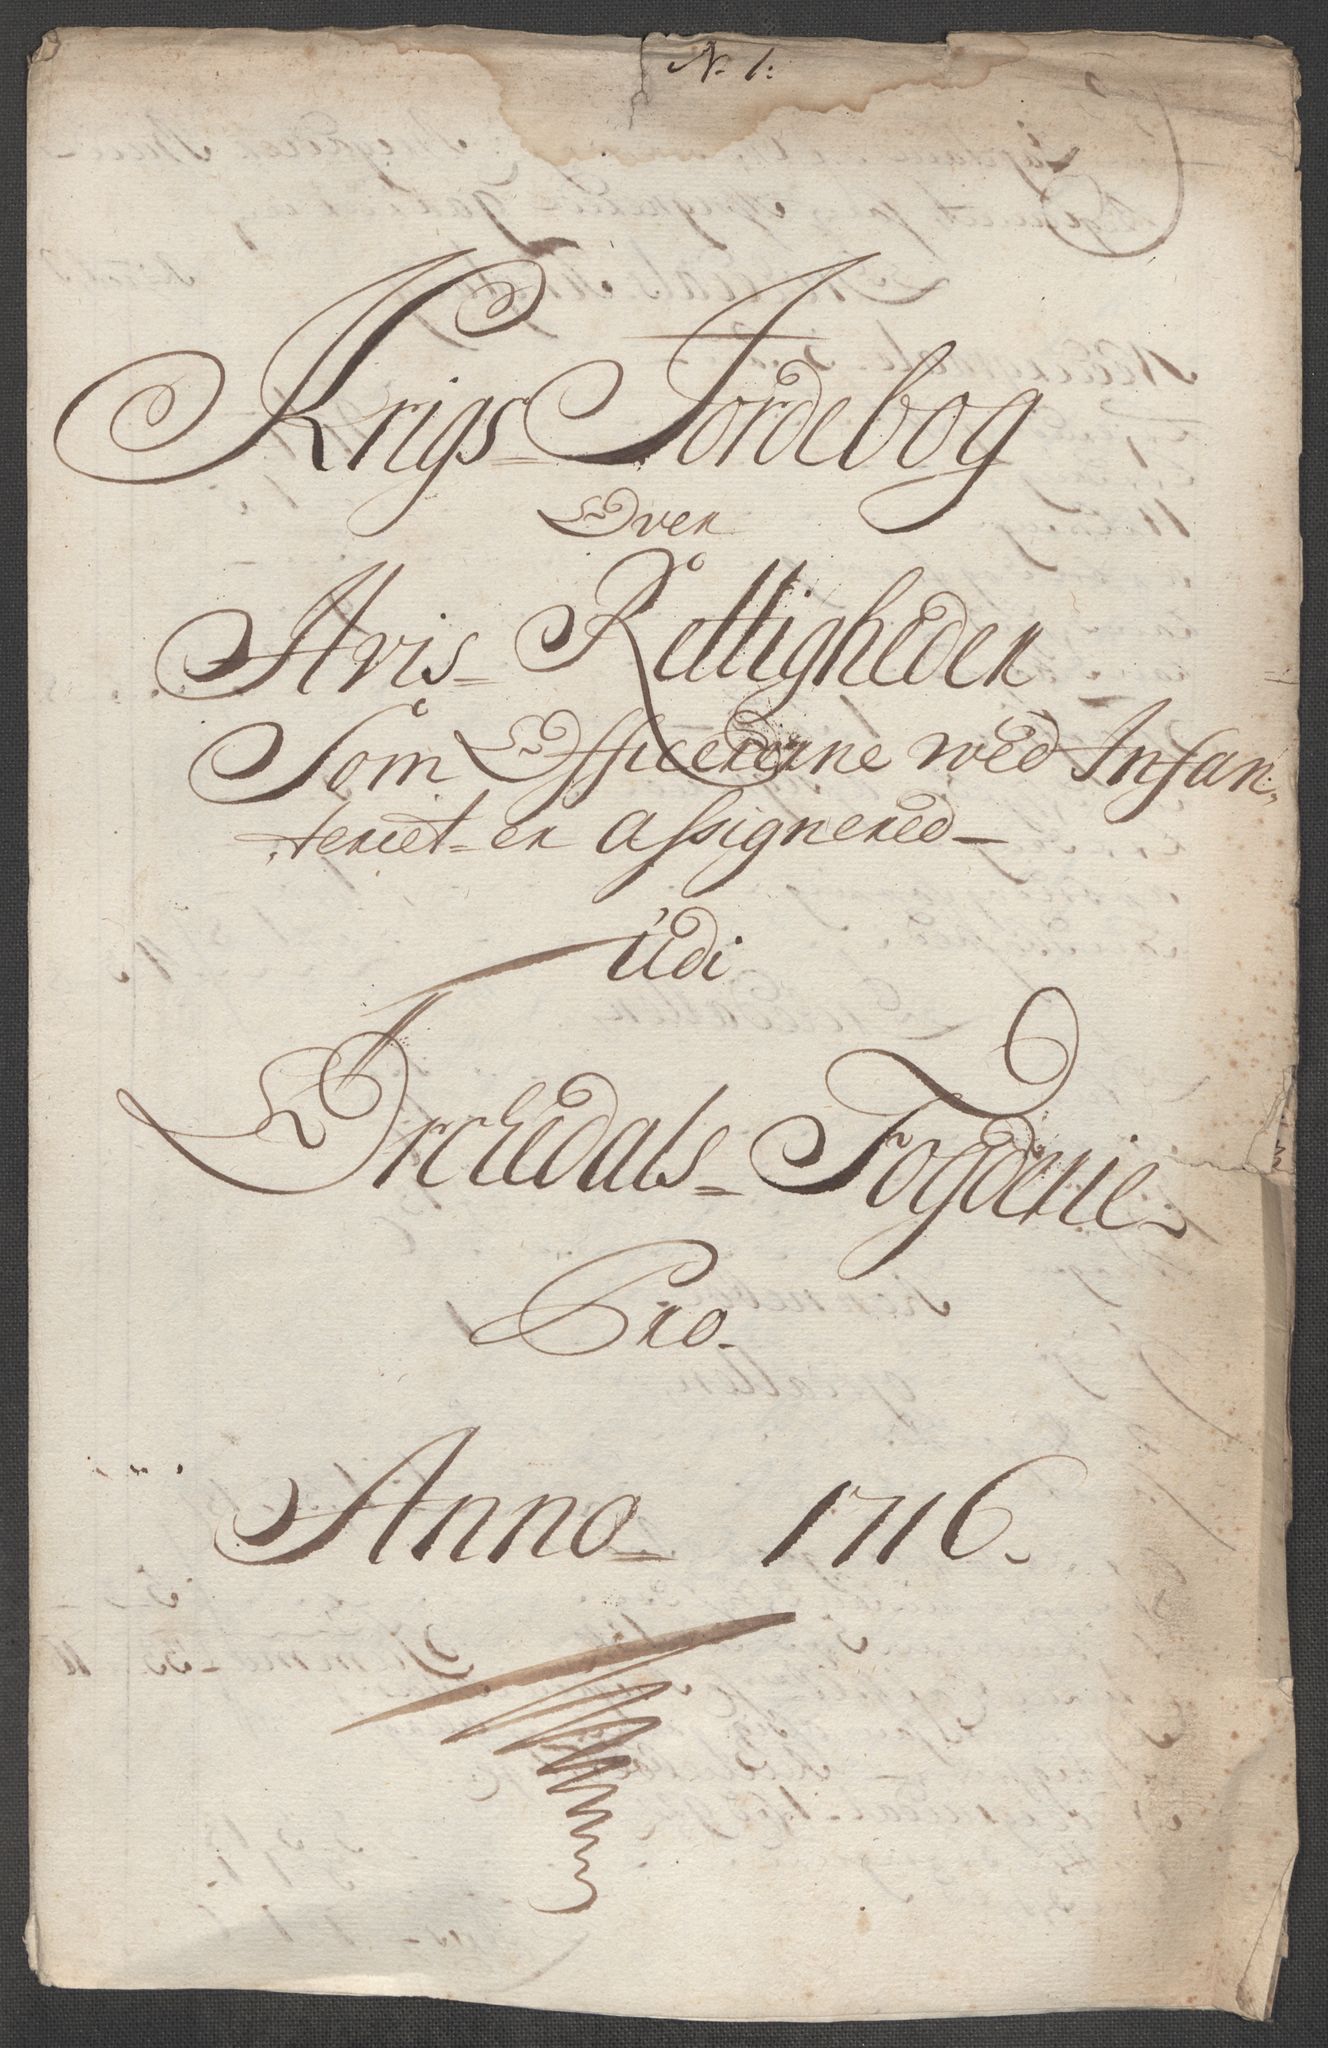 N. 1:
Krigs= Jordebog
Over
Avis= Rettigheder
Som Officererne wed Infan,
teriet er assignered
üdi
Orckedals= Fogderie
Pro
Anno 1716.